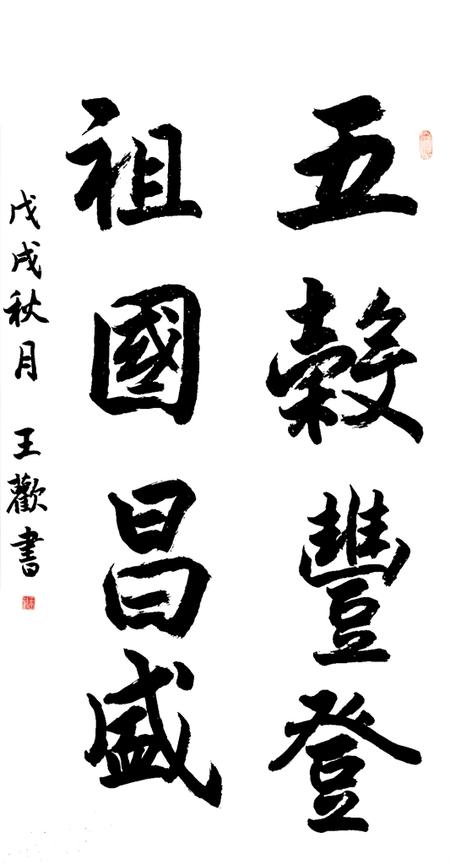 五穀豐登
祖國昌盛
戊戌秋月 王歡書